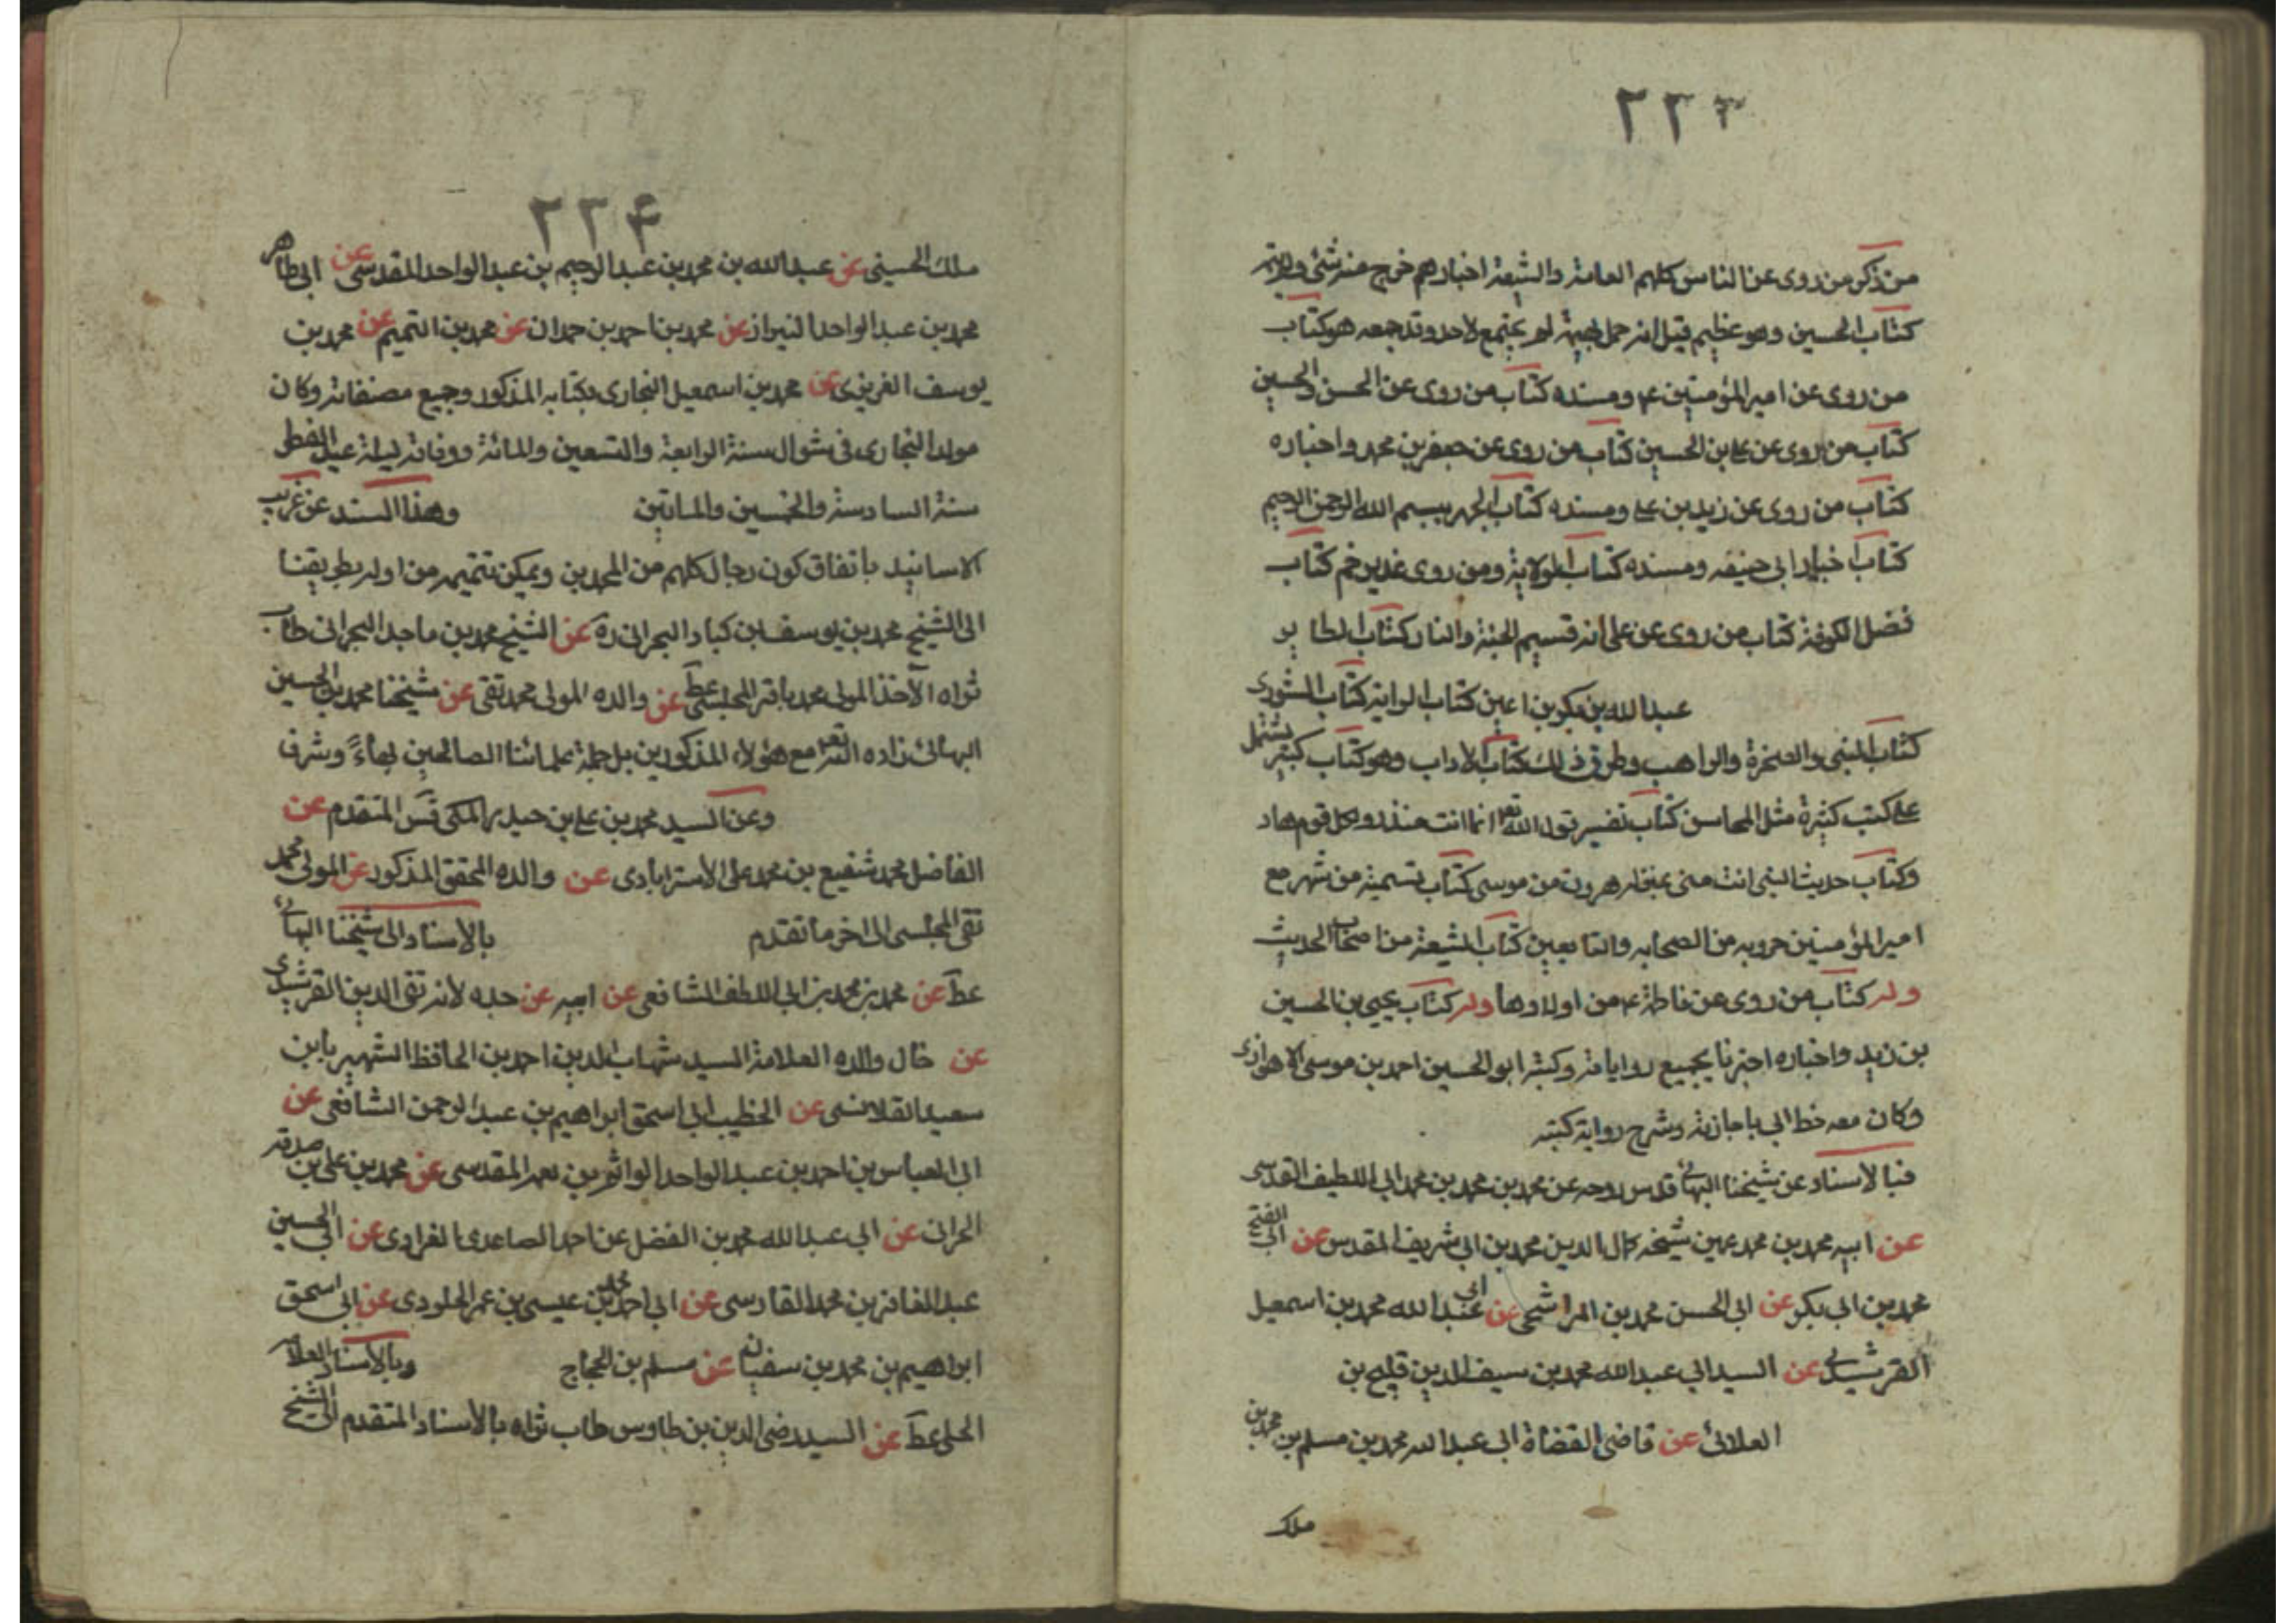 ٢٢٣
من ذكر من روى عن الناس كلهم العامة والشيعة اخبارهم خرج منه شئ
كتاب الحسين وهو عظيم قيل انه حمل بهيمة لم يجتمع لاحد وقد جمعه هو كتاب
من روى عن امير المؤمنين ع ومسنده كتاب من روى عن الحسن والحسين
كتاب من روى عن علي بن الحسين كتاب من روى عن جعفر بن محمد واخباره
كتاب من روى عن زيد بن علي ومسنده كتاب الجهر ببسم الله الرحمن الرحيم
كتاب اخبار ابي حنيفه ومسنده كتاب الولاية ومن روى غدير خم كتاب
فضل الكوفة كتاب من روى عن علي انه قسيم الجنة والنار كتاب الطاير
عبد الله بن بكير بن اعين كتاب الراية كتاب الشورى
كتاب النبي والصخرة والراهب وطرق ذلك كتاب الاداب وهو كتاب كبير يشتمل
على كتب كثيرة مثل المحاسن كتاب تفسير قول الله تعم انما انت منذر ولكل قوم هاد
وكتاب حديث النبي انت مني بمنزلة هرون من موسى كتاب تسمية من شهر مع
امير المؤمنين حروبه من الصحابه والتابعين كتاب الشيعة من اصحاب الحديث
وله كتاب من روى عن فاطمة ع من اولادها وله كتاب يحيى بن الحسين
بن زيد واخباره اخبرنا بجميع رواياته وكتبه ابو الحسين احمد بن موسى الاهوازى
وكان معه خط ابي باجازته وشرح رواية كتبه
فبالاسناد عن شيخنا البهائى قدس روحه عن محمد بن محمد بن محمد ابي اللطيف القدسى
عن ابيه محمد بن محمد عن شيخه كمال الدين محمد بن ابي شريف المقدس عن ابي الفتح
محمد بن ابي بكر عن ابي الحسن محمد بن عن ابي عبد الله محمد بن اسمعيل
القرشي عن السيد ابي عبد الله محمد بن سيف الدين قليج بن
العلائى عن قاضى القضاة ابي عبد الله محمد بن مسلم بن محمد بن
ملك
٢٢۴
ملك الحسيني عن عبد الله بن محمد بن عبد الرحيم بن عبد الواحد المقدسى عن ابي طاهر
محمد بن عبد الواحد البزاز عن محمد بن احمد بن حمدان عن محمد بن التميم عن محمد بن
يوسف الفربرى عن محمد بن اسمعيل البخارى بكتابه المذكور وجميع مصنفاته وكان
مولد البخارى في شوال سنة الرابعة والتسعين والمائة ووفاته ليلة عيد الفطر
سنة السادسة والخمسين والماتين وهذا السند عن غريب
الاسانيد باتفاق كون رجاله كلهم من المحمدين ويمكن تتميمه من اوله بطريقنا
الى الشيخ محمد بن يوسف بن كبار البحرانى ره عن الشيخ محمد بن ماجد البحرانى طاب
ثراه الآخذ المولى محمد باقر المجلسى عط عن والده المولى محمد تقى عن شيخنا محمد بن الحسين
البهائى زاده الله تعم مع هؤلاء المذكورين بل جملة علمائنا الصالحين بهاءً وشرف
وعن السيد محمد بن علي بن حيدر المكى قس المتقدم عن
الفاضل محمد شفيع بن محمد على الاسترابادى عن والده المحقق المذكور عن المولى محمد
تقى المجلسى الى اخر ما تقدم بالاسناد الى شيخنا البهائى
عط عن محمد بن محمد بن ابي اللطف الشافعى عن ابيه عن جده لانه تقى الدين القرشندى
عن خال والده العلامة السيد شهاب الدين احمد بن الحافظ الشهير بابن
سعيد القلانسى عن الخطيب ابي اسحق ابراهيم بن عبد الرحمن الشافعى عن
ابي العباس بن احمد بن عبد الواحد بن المقدسى عن محمد بن على بن صدقه
الحرانى عن ابي عبد الله محمد بن الفضل عن احمد الصاعدى الفراوى عن ابي الحسين
عبد الغافر بن محمد الفارسى عن ابي احمد محمد بن عيسى بن عمر الجلودى عن ابي اسحق
ابراهيم بن محمد بن سفيان عن مسلم بن الحجاج وبالاسناد العلامه
الحلى عط عن السيد رضى الدين بن طاوس طاب ثراه بالاسناد المتقدم الى الشيخ